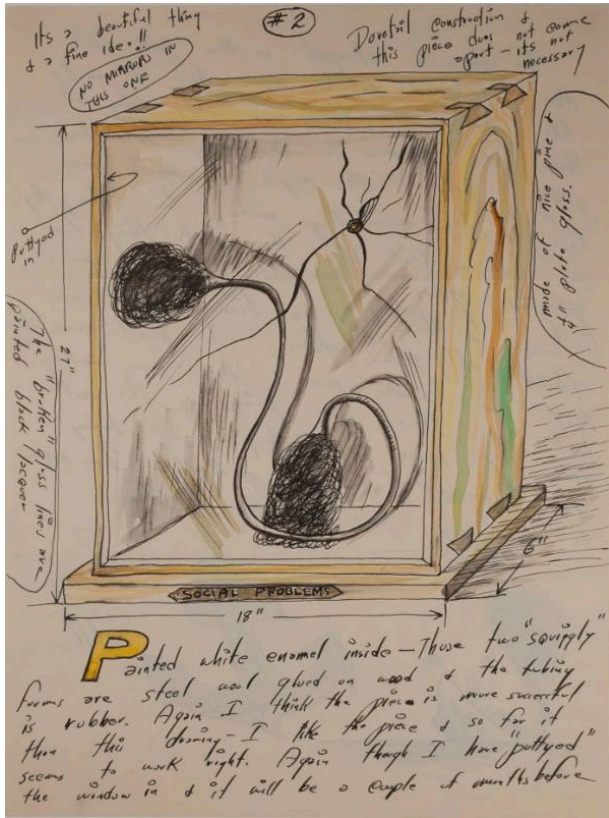 Its a beautiful thing
& a fine idea!!
#2
NO MIRRORS IN
THIS ONE
Dovetail construction &
this piece does not come
apart - its not
necessary
Puttyed
in
27"
The "Broken" glass lines are
painted black lacquer
made of nice pine &
plate glass.
6"
SOCIAL PROBLEMS
18"
Painted white enamel inside — Those two "squiggly"
forms are steel wool glued on wood & the tubing
is rubber. Again I think the piece is more successful
than this drawing - I like the piece & so far it
seems to work right. Again though I have "puttyed"
the window in & it will be a couple of months before